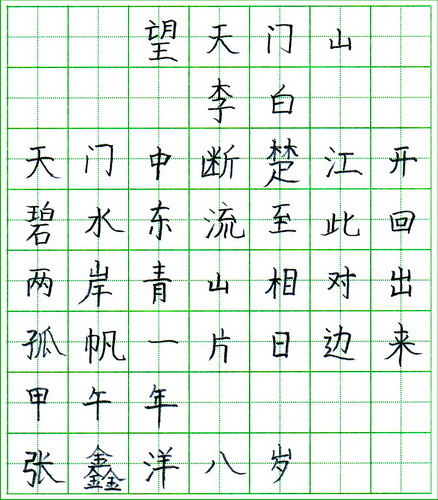 望天门山
李白
天门中断楚江开
碧水东流至此回
两岸青山相对出
孤帆一片日边来
甲午年
张鑫洋八岁